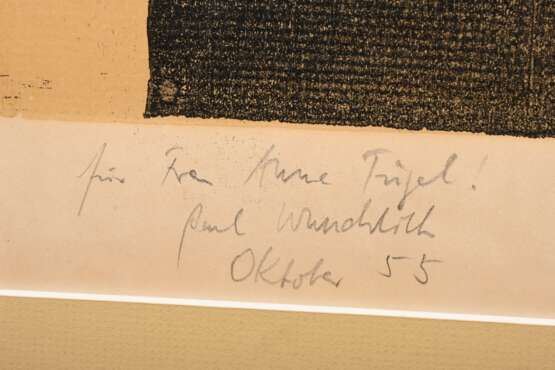 für Frau Anne Tügel!
Paul Wunderlich
Oktober 55